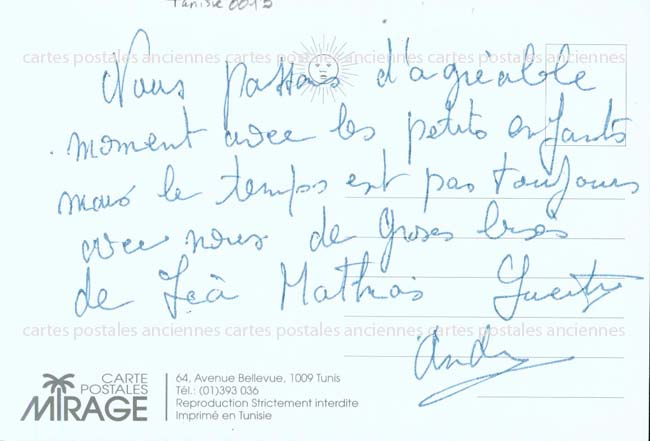 Tunisie 0015
cartes postales anciennes cartes postales anciennes cartes postales anciennes
Nous passons d'agréable
moment avec les petits enfants
mais le temps est pas toujours
avec nous de groses bises
de Léa Mathias
cartes postales anciennes cartes postales anciennes cartes postales anciennes
CARTE
POSTALES
MIRAGE
64, Avenue Bellevue, 1009 Tunis
Tél.: (01)393 036
Reproduction Strictement interdite
Imprimé en Tunisie